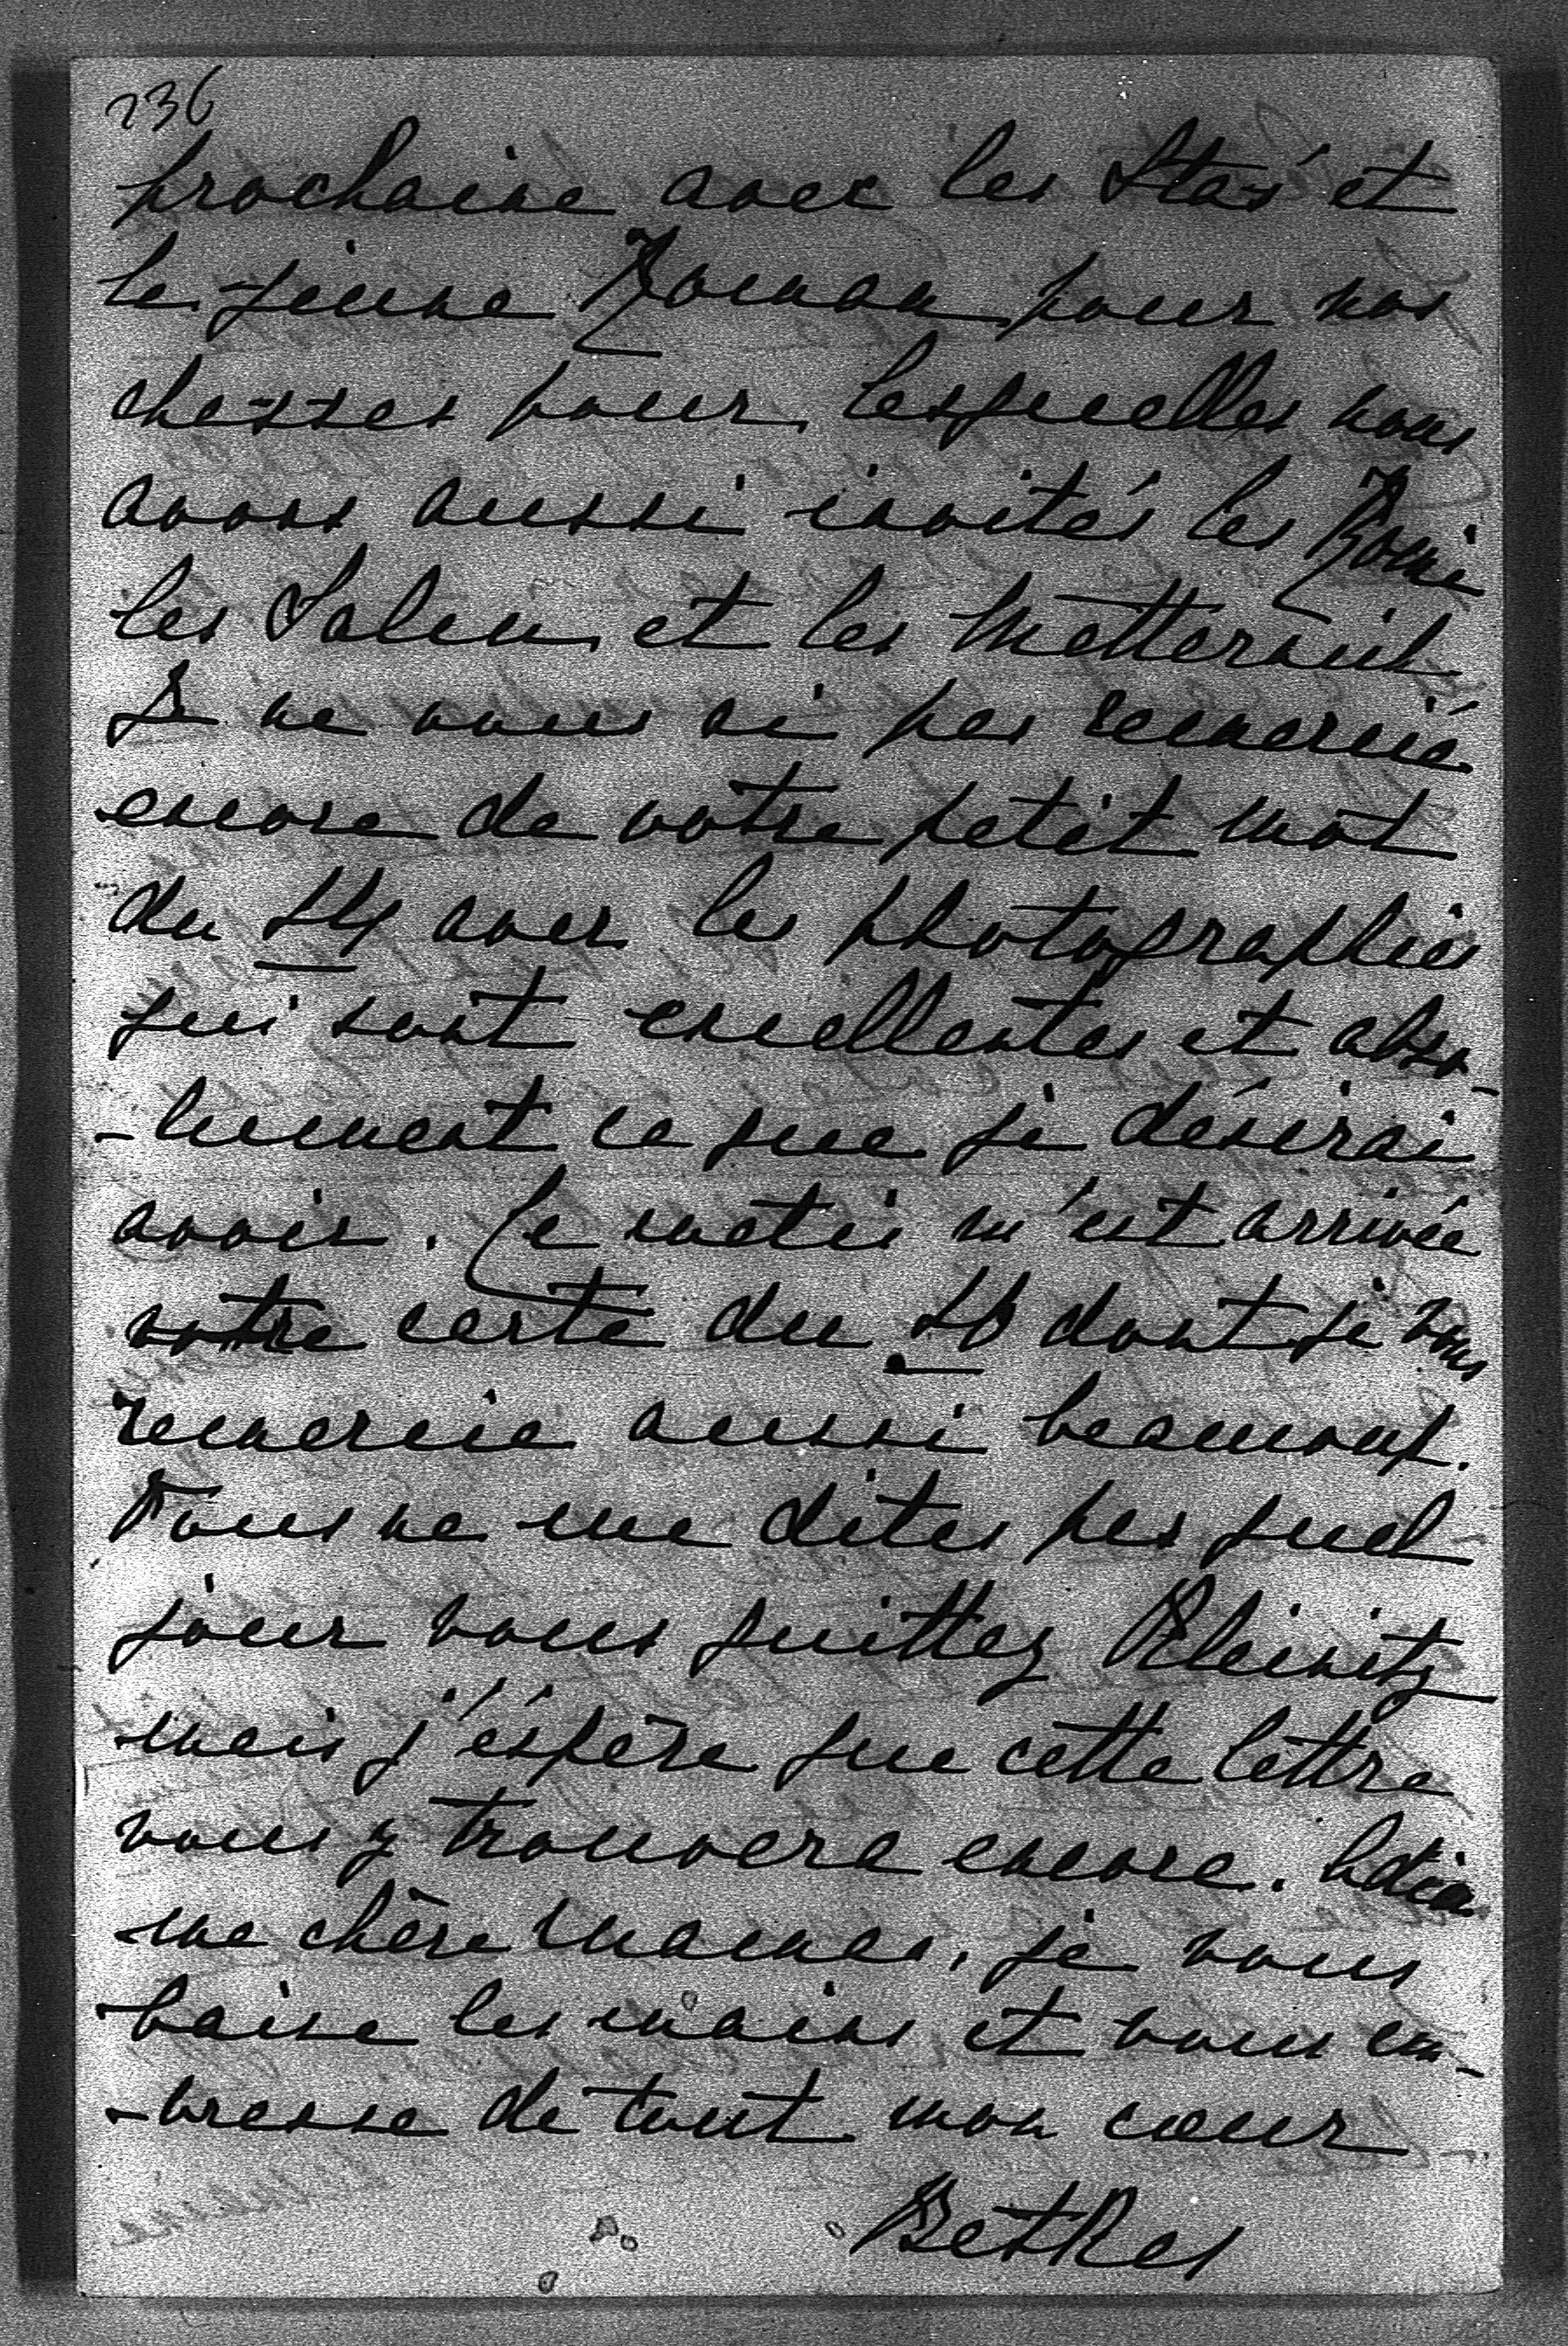 236
prochaine avec les Stas' et
le jeune Roman pour nos
chasses pour lesquelles nous
avons aussi invités les
les et les Metternich
Je ne vous ai pas remercié
encore de votre petit mot
du 14 avec les photographies
qui sont excellentes et abso-
-lument ce que je désirai
avoir. Ce matin m'est arrivée
votre carte du dont je vous
remercie aussi beaucoup.
Vous ne me dites pas quel
jour vous quittez Kleinitz
mais j'éspère que cette lettre
vous y trouvera encore. Adieu
ma chère Maman, je vous
baise les mains et vous em-
-brasse de tout mon cœur
Betka